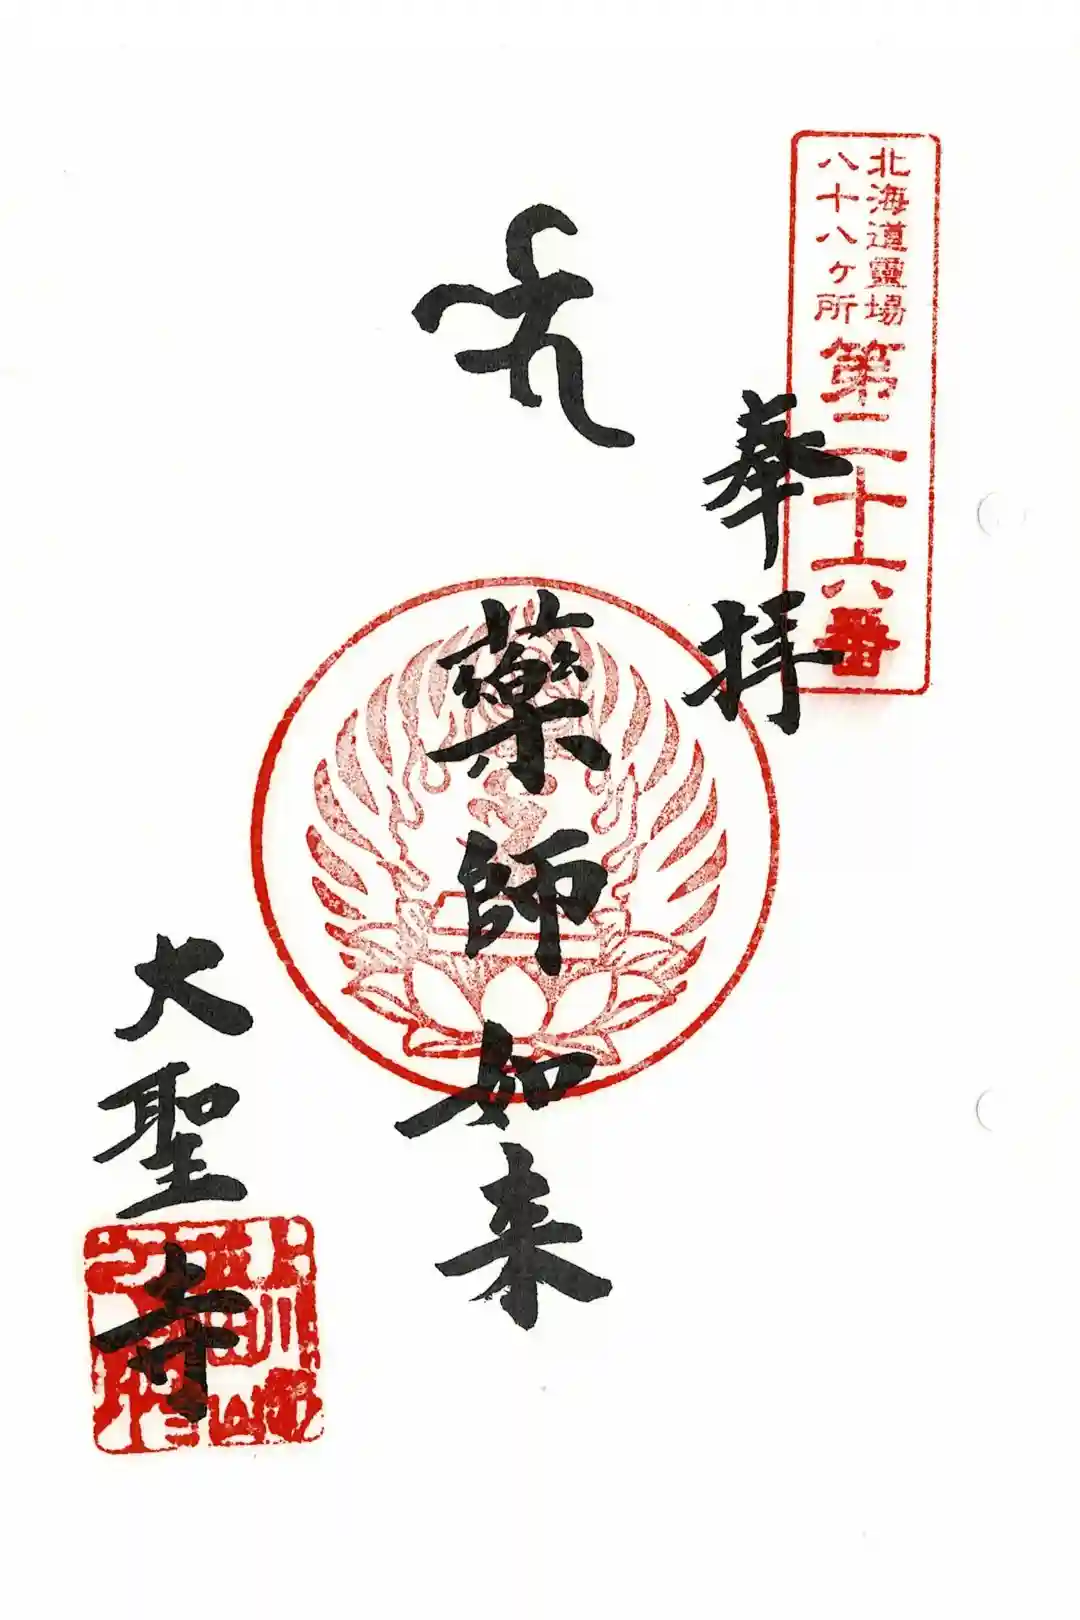 北海道靈場
八十八ヶ所
第二十六番
奉拝
藥師如来
大聖寺